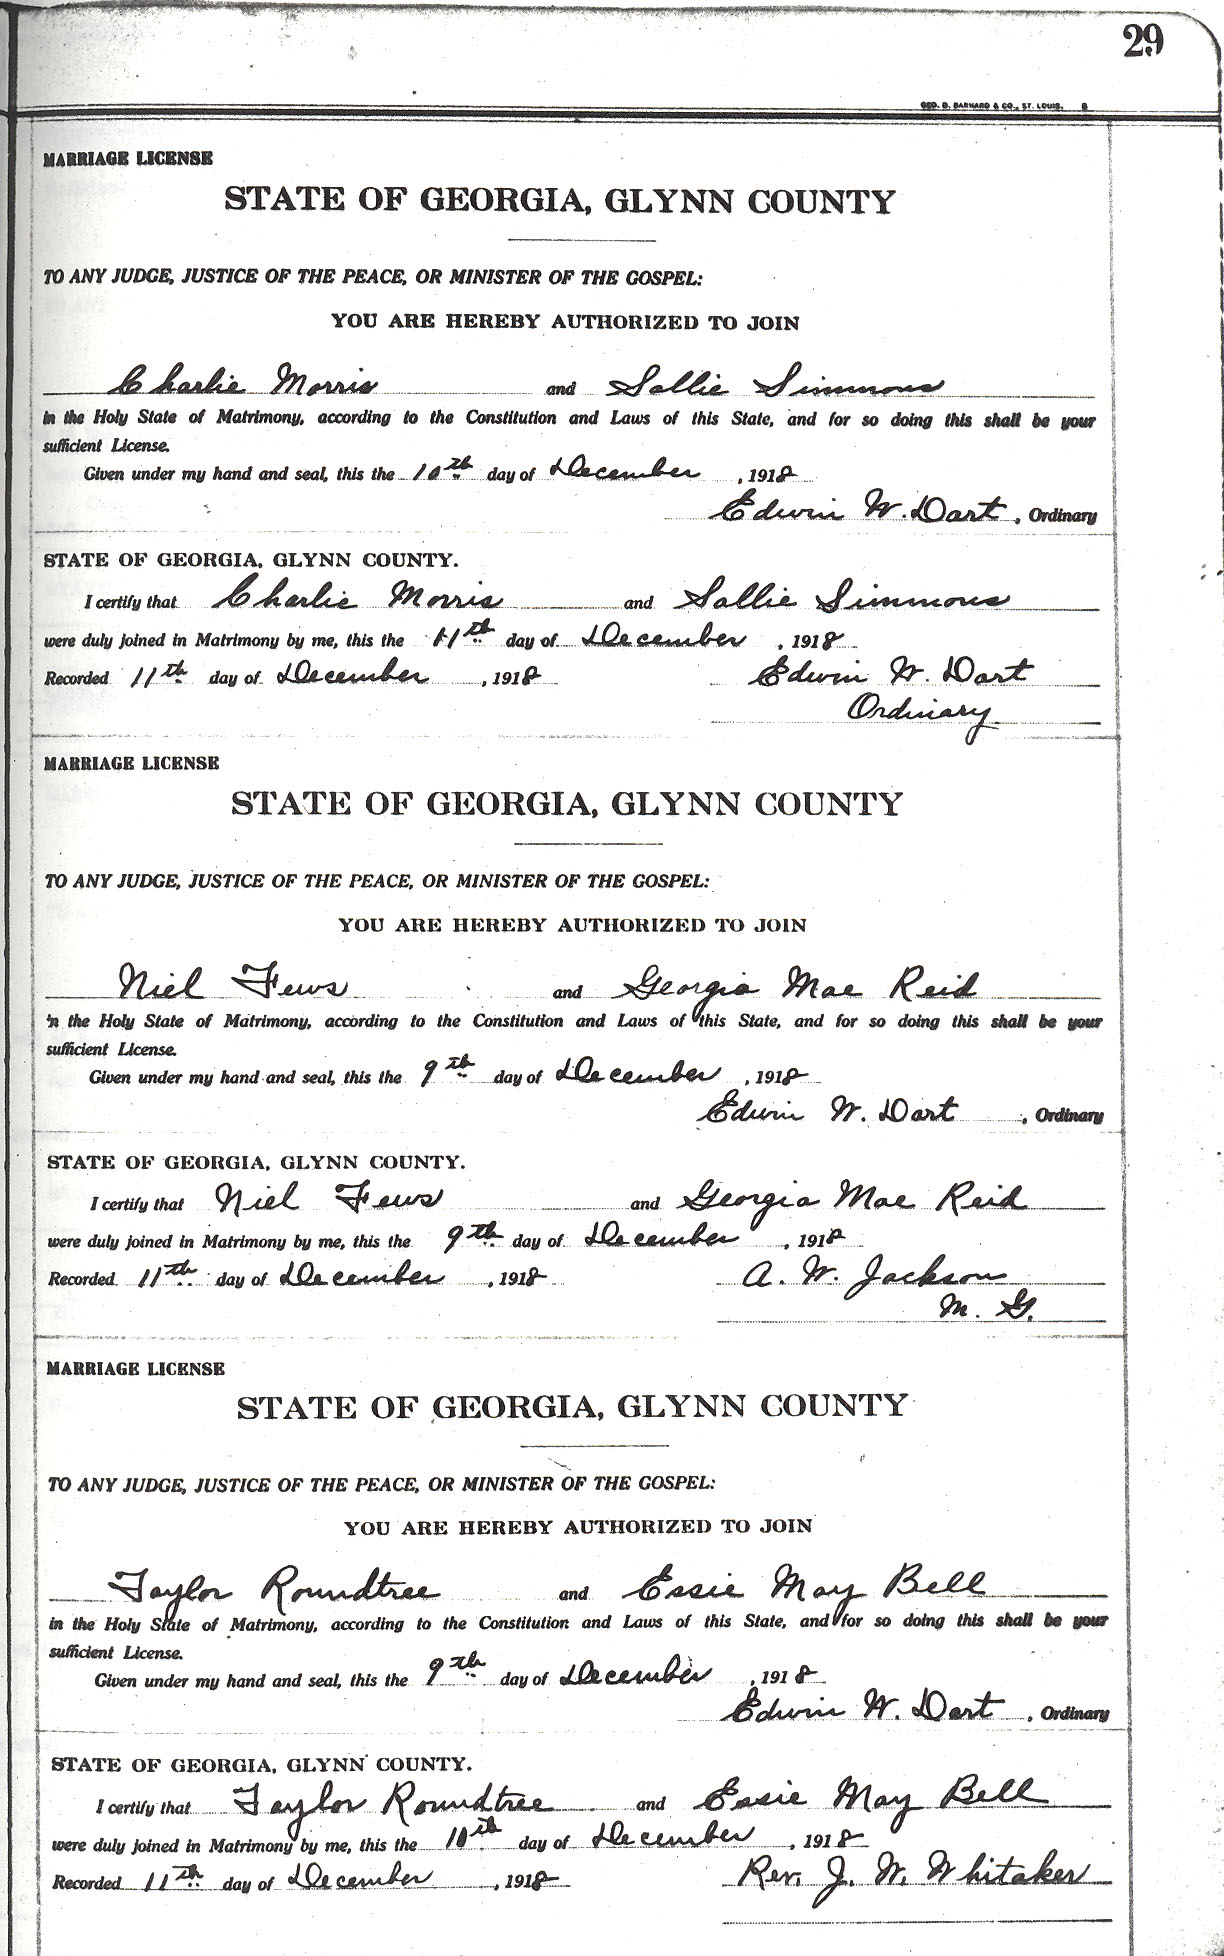 29
GEO. D. BARNARD & CO., ST. LOUIS. B
MARRIAGE LICENSE
STATE OF GEORGIA, GLYNN COUNTY
TO ANY JUDGE, JUSTICE OF THE PEACE, OR MINISTER OF THE GOSPEL:
YOU ARE HEREBY AUTHORIZED TO JOIN
Charlie Morris and Sallie Simmons
in the Holy State of Matrimony, according to the Constitution and Laws of this State, and for so doing this shall be your
sufficient License.
Given under my hand and seal, this the 10th day of December, 1918
Edwin W. Dart, Ordinary
STATE OF GEORGIA, GLYNN COUNTY.
I certify that Charlie Morris and Sallie Simmons
were duly joined in Matrimony by me, this the 11th day of December, 1918
Recorded 11th day of December, 1918 Edwin W. Dart
Ordinary
MARRIAGE LICENSE
STATE OF GEORGIA, GLYNN COUNTY
TO ANY JUDGE, JUSTICE OF THE PEACE, OR MINISTER OF THE GOSPEL:
YOU ARE HEREBY AUTHORIZED TO JOIN
Niel Fews and Georgia Mae Reid
in the Holy State of Matrimony, according to the Constitution and Laws of this State, and for so doing this shall be your
sufficient License.
Given under my hand and seal, this the 9th day of December, 1918
Edwin W. Dart, Ordinary
STATE OF GEORGIA, GLYNN COUNTY.
I certify that Niel Fews and Georgia Mae Reid
were duly joined in Matrimony by me, this the 9th day of December, 1918
Recorded 11th day of December, 1918 A. W. Jackson
M. G.
MARRIAGE LICENSE
STATE OF GEORGIA, GLYNN COUNTY
TO ANY JUDGE, JUSTICE OF THE PEACE, OR MINISTER OF THE GOSPEL:
YOU ARE HEREBY AUTHORIZED TO JOIN
Taylor Roundtree and Essie May Bell
in the Holy State of Matrimony, according to the Constitution and Laws of this State, and for so doing this shall be your
sufficient License.
Given under my hand and seal, this the 9th day of December, 1918
Edwin W. Dart, Ordinary
STATE OF GEORGIA, GLYNN COUNTY.
I certify that Taylor Roundtree and Essie May Bell
were duly joined in Matrimony by me, this the 10th day of December, 1918
Recorded 11th day of December, 1918 Rev. J. W. Whitaker